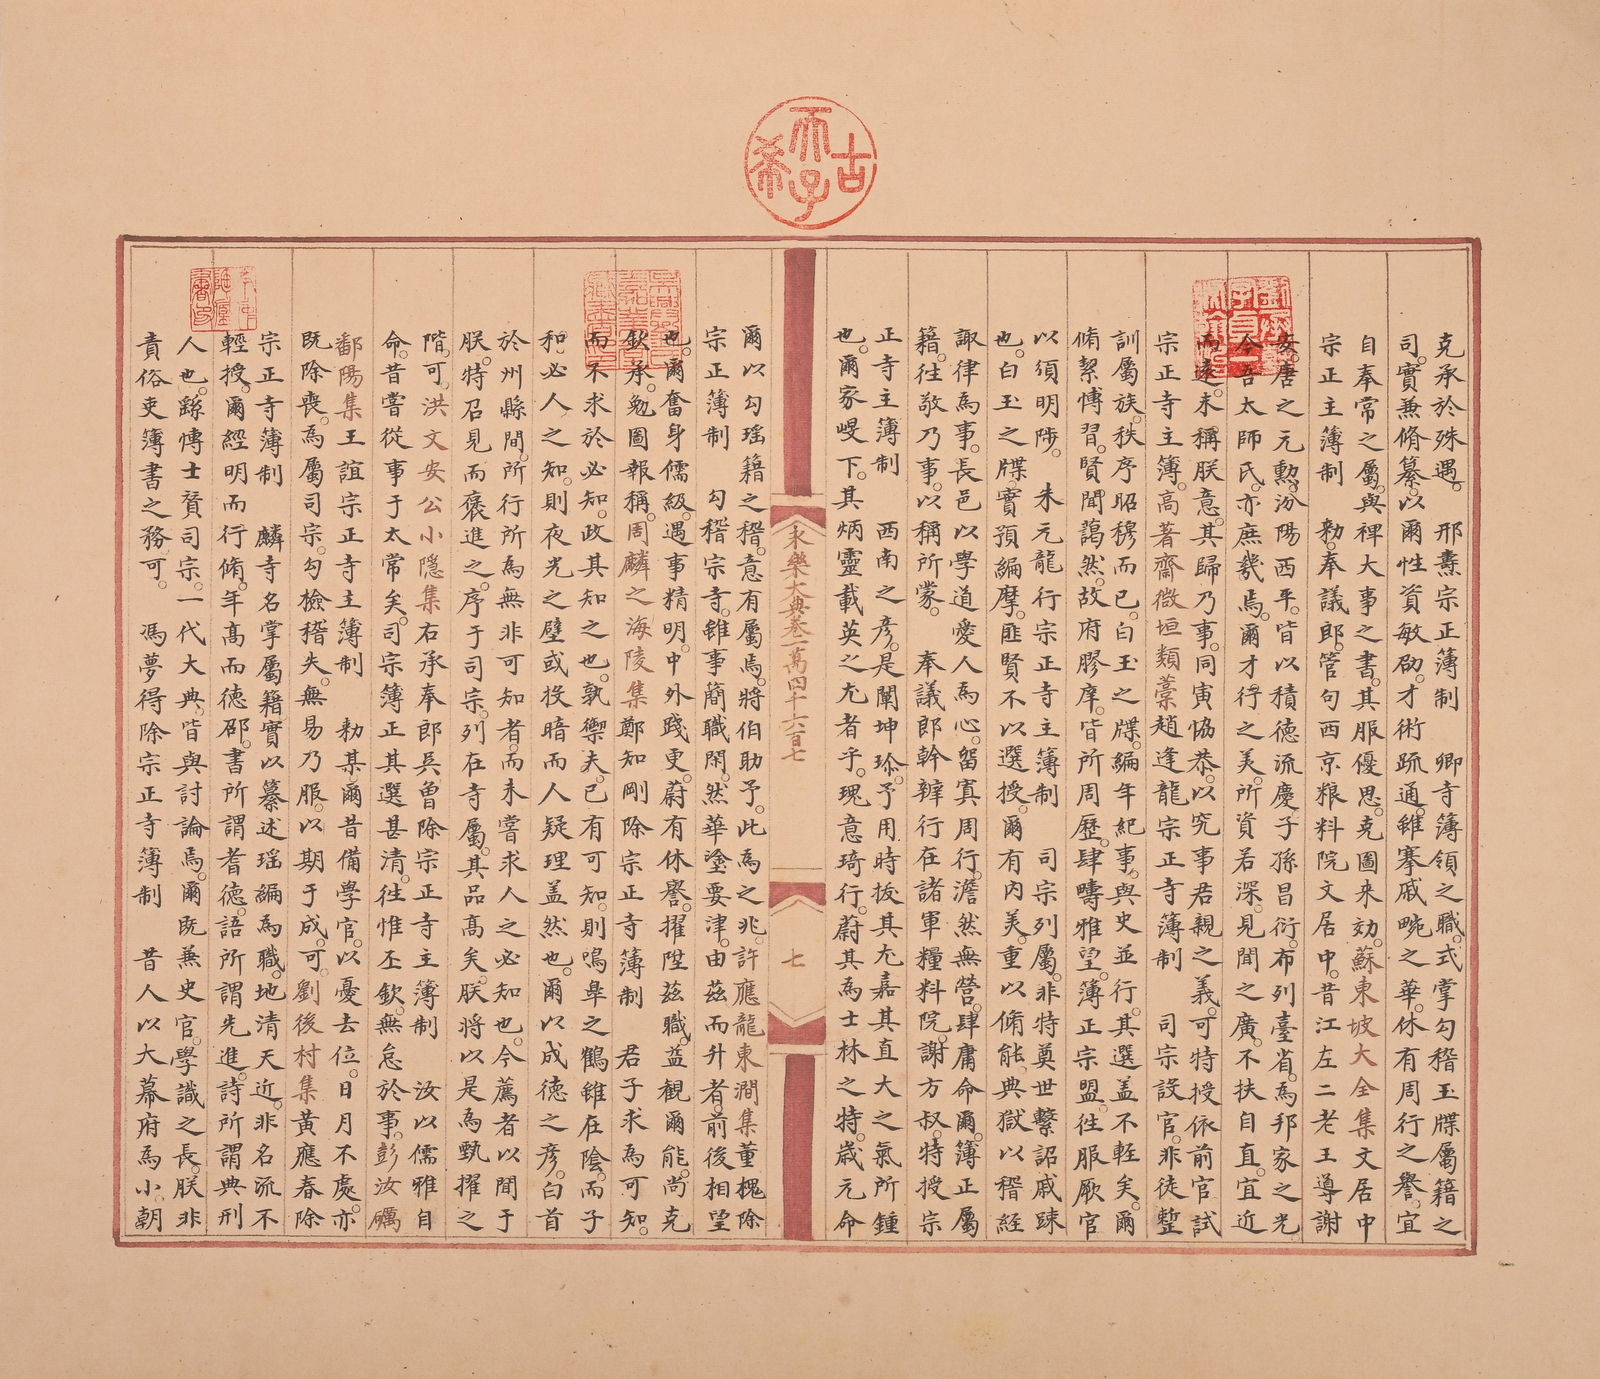 克承於殊遇。　邢燾宗正簿制　卿寺簿領之職。式掌勾稽玉牒屬籍之
司。實兼脩纂。以爾性資敏劭。才術疏通。雖搴戚畹之華。休有周行之譽。宜
自奉常之屬。與裨大事之書。其服優思。克圖来効。蘇東坡大全集文居中
宗正主簿制　勑。奉議郎。管句西京粮料院文居中。昔江左二老王導謝
安。唐之元勲。汾陽西平。皆以積徳流慶。子孫昌衍。布列臺省。為邦家之光
今吾太師氏。亦庶幾焉。爾才行之美。所資若深。見聞之廣。不扶自直。宜近
而遠。未稱朕意。其歸乃事。同寅恊恭。以究事君親之義。可特授依前官試
宗正寺主簿。高著齋微垣類藁趙逢龍宗正寺簿制　司宗設官。非徒整
訓屬族。秩序昭穆而已。白玉之牒。編年紀事。與史並行。其選盖不輕矣。爾
脩絜慱習。賢聞藹然。故府膠庠。皆所周歷。肆疇雅望。簿正宗盟。徃服厥官
以須明陟。　朱元龍行宗正寺主簿制　司宗列屬。非特奠世繫詔戚踈
也。白玉之牒。實預編摩。匪賢不以選授。爾有内美。重以脩能。典獄以稽經
諏律為事。長邑以學道愛人為心。㽞寘周行。澹然無營。肆庸命爾。簿正屬
籍。徃敬乃事。以稱所蒙。　奉議郎幹辦行在諸軍糧料院。謝方叔。特授宗
正寺主簿制　西南之彦。是闡坤珎。予用時拔其尤。嘉其直大之氣所鍾
也。爾家㟅下。其炳靈載英之尤者乎。瑰意琦行。蔚其為士林之特。歳元命
永樂大典卷一萬四千六百七
七
爾以勾瑶籍之稽。意有屬焉。將伯助予。此為之兆。許應龍東澗集董槐除
宗正簿制　勾稽宗寺。雖事簡職閑。然華塗要津。由茲而升者。前後相望
也。爾奮身儒級。遇事精明。中外踐更。蔚有休譽。擢陞茲職。益観爾能。尚克
欽承。勉圖報稱。周麟之海陵集鄭知剛除宗正寺簿制　君子求為可知。
而不求於必知。政其知之也。孰禦夫。已有可知。則鳴臯之鶴。雖在陰。而子
和。必人之知。則夜光之璧。或投暗而人疑。理盖然也。爾以成徳之彦。白首
於州縣間。所行所為。無非可知者。而未嘗求人之必知也。今薦者以聞于
朕。特召見而褒進之。序于司宗。列在寺屬。其品髙矣。朕將以是為甄擢之
階。可。洪文安公小隱集右承奉郎吳曾除宗正寺主簿制　汝以儒雅自
命。昔嘗從事于太常矣。司宗簿正。其選甚清。徃惟丕欽。無怠於事。彭汝礪
鄱陽集王誼宗正寺主簿制　勑某。爾昔備學官。以憂去位。日月不處。亦
既除喪。為屬司宗。勾檢稽失。無易乃服。以期于成。可。劉後村集黄應春除
宗正寺簿制　麟寺名掌屬籍。實以纂述瑶編為職。地清天近。非名流不
輕授。爾經明而行脩。年髙而徳邵。書所謂耆徳。語所謂先進。詩所謂典刑
人也。繇慱士贊司宗。一代大典。皆與討論焉。爾既兼史官。學識之長。朕非
責俗吏簿書之務。可。　馮夢得除宗正寺簿制　昔人以大幕府為小。朝